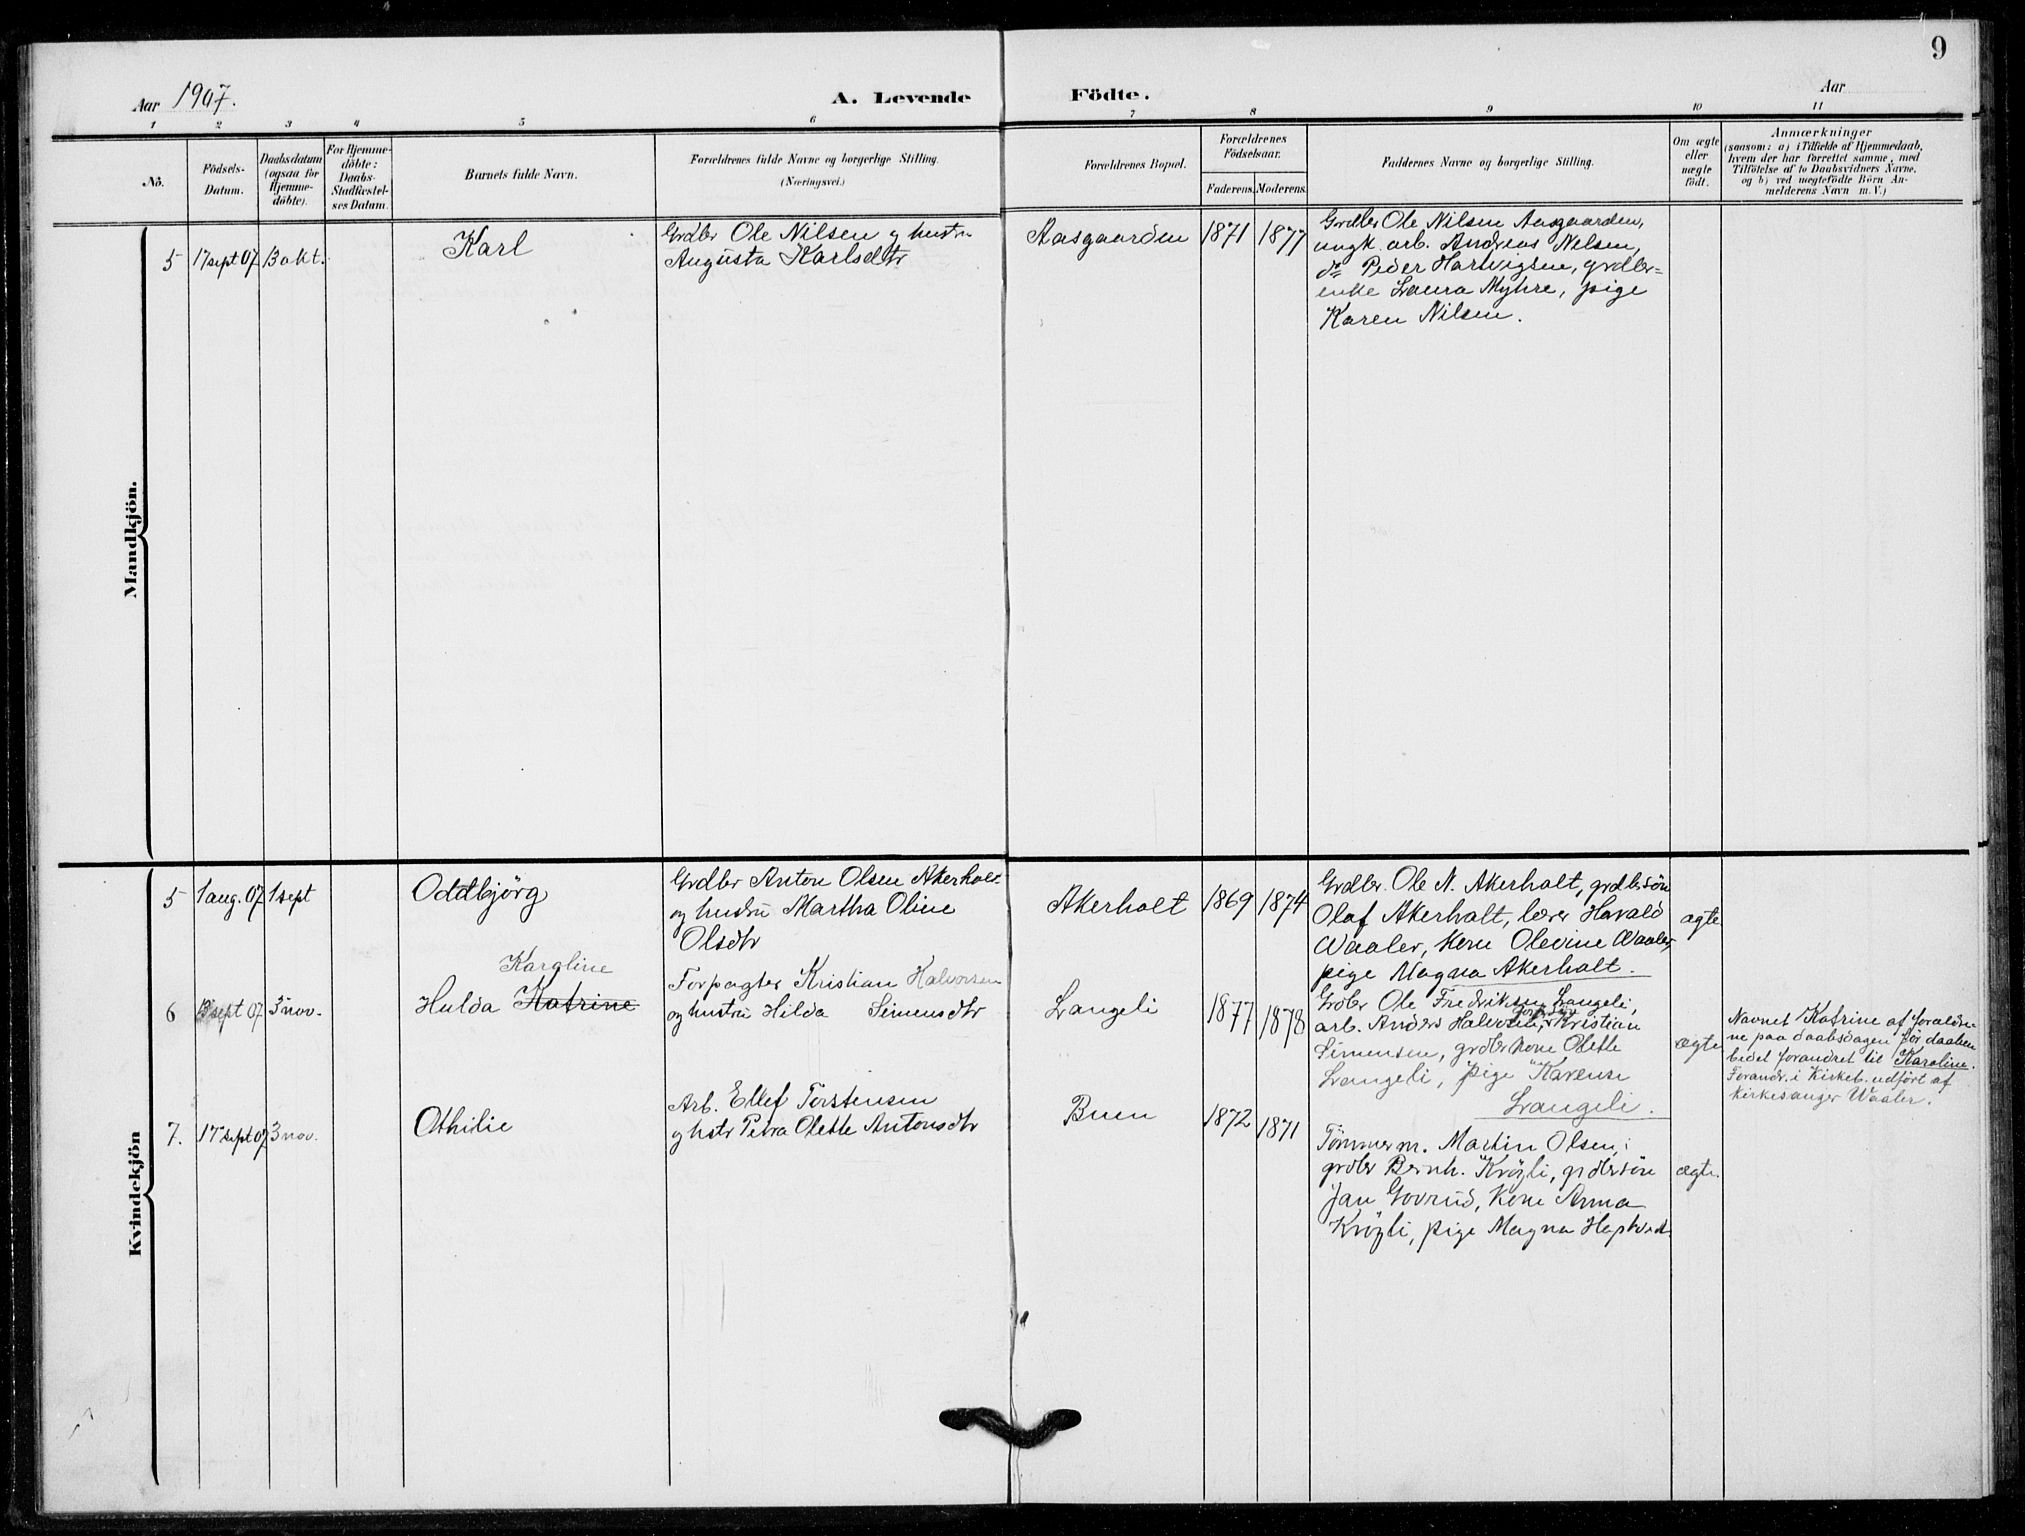 9
Aar 1907.
A. Levende Födte.
Aar
1 2 3 4 5 6 7 8 9 10 11
No.
Födsels-
Datum.
Daabsdatum
(ogsaa for
Hjemme-
döbte).
For Hjemme-
döbte:
Daabs-
Stadfæstel-
ses Datum.
Barnets fulde Navn.
Forældrenes fulde Navne og borgerlige Stilling.
(Næringsvei.)
Forældrenes Bopæl.
Forældrenes
Födselsaar.
Faderens. Moderens.
Faddernes Navne og borgerlige Stilling.
Om ægte
eller
uægte
födt.
Anmærkninger
(saasom: a) i Tilfælde af Hjemmedaab,
hvem der har forrettet samme, med
Tilföielse af to Daabsvidners Navne,
og b) ved uægtefödte Börn An-
melderens Navn m. V.)
Mandkjön.
5 17 sept 07 13 okt.
Karl
Grdbr Ole Nilsen og hustru
Augusta Karlsdtr
Aasgaarden 1871 1877
Grdbr Ole Nilsen Aasgaarden,
ungk. arb. Andreas Nilsen,
do Peder Hartvigsen, grdbr-
enke Laura Myhre, pige
Karen Nilsen.
Kvindekjön
5 1 aug. 07 1 sept
Oddbjörg
Grdbr Anton Olsen Akerholt
og hustru Martha Oline
Olsdtr
Akerholt 1869 1874
Grdbr. Ole N. Akerholt, grdbrsön
Olaf Akerholt, lærer Harald
Waaler, kone Olevine Waaler,
pige Magna Akerholt.
ægte
6 sept 07 3 nov.
Karoline
Hulda Katrine
Forpagter Kristian Halvorsen
og hustru Hilda Simensdtr
Langeli 1877 1878
Grdbr Ole Fredriksen Langeli,
arb. Anders Halvorsen, Kristian
Simensen, grdbrkone Olette
Langeli, pige Karense
Langeli.
ægte
Navnet Katrine af foraldre-
ne paa daabsdagen för daaben
bedet forandret til Karoline.
Forandr. i Kirkeb. udfört af
kirkesanger Waaler.
7. 17 sept 07 3 nov.
Othilie
Arb. Ellef Torstensen
og hstr Petra Olette Antonsdtr
Buen 1872 1871
Tømmerm. Martin Olsen,
grdbr Bernh. Krögli, grdbrsön
Jan Govrud, kone Anna
Krögli, pige Magna
ægte.